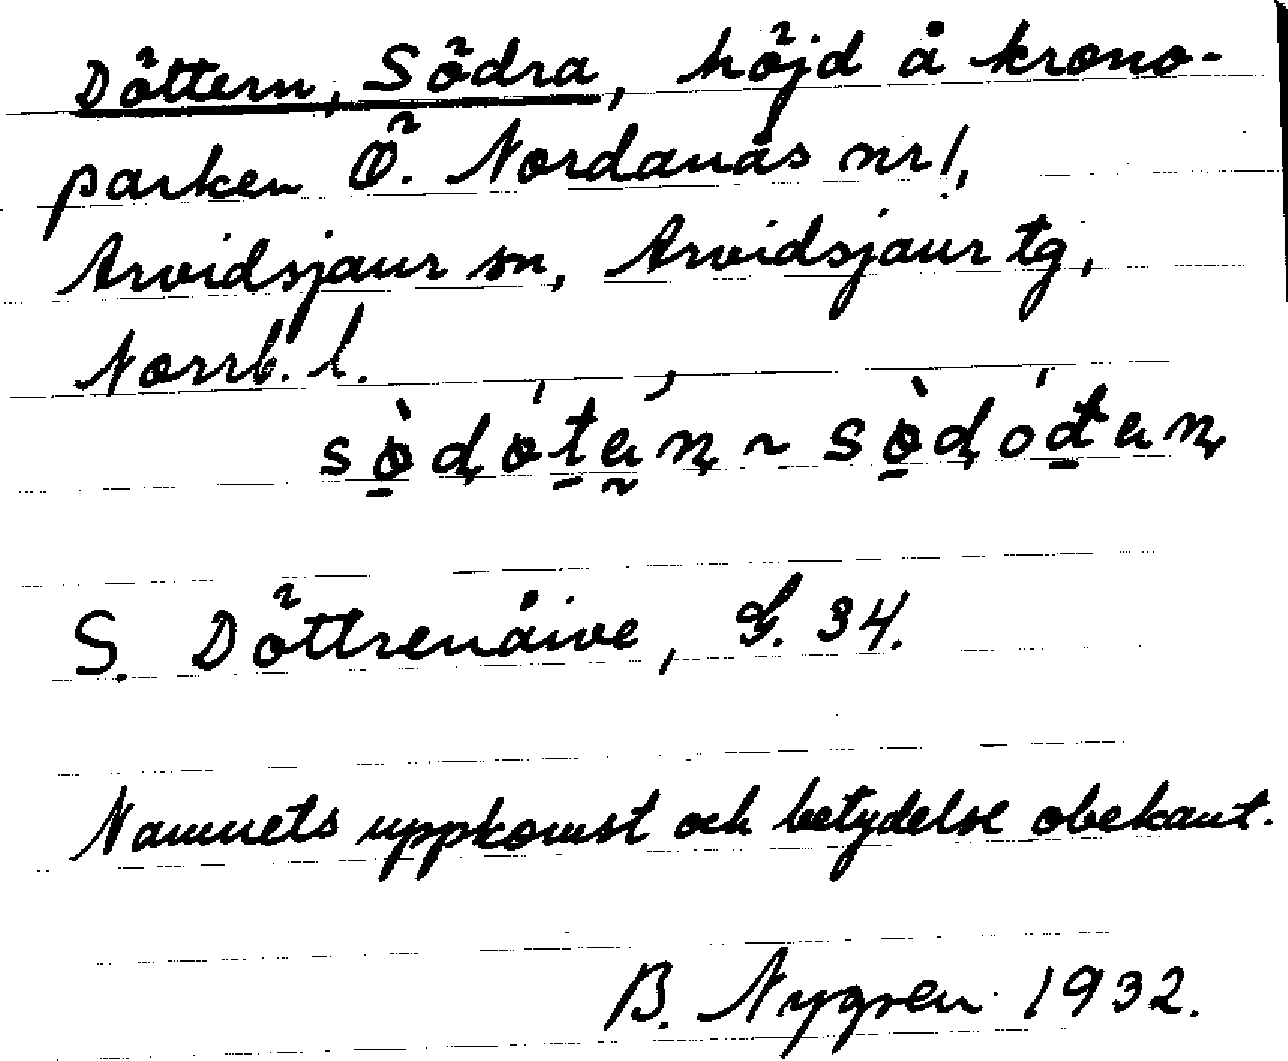 Döttern, Södra, höjd å krono-
parken Ö. Nordanås nr 1,
Arvidsjaur sn, Arvidsjaur tg,
Norrb. l.
S. Döttrenåive, G. 34.
Namnets uppkomst och betydelse obekant.
B. Nygren 1932.